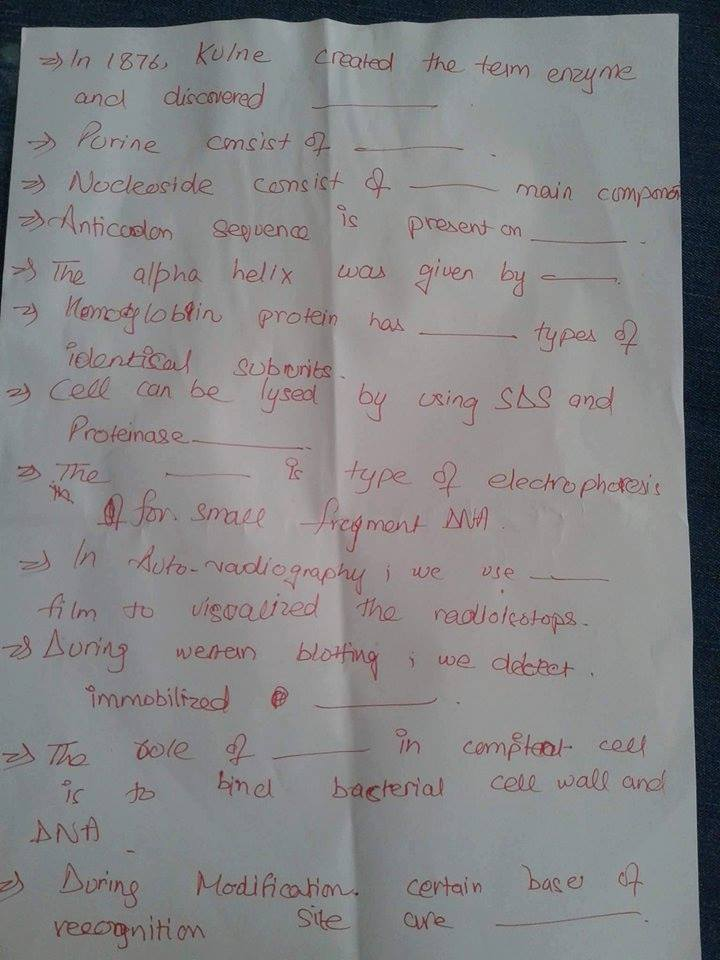 ⇒ In 1876, Kulne created the term enzyme
and discovered ________
⇒ Purine consist of ________ .
⇒ Nocleoside consist of ________ main compon
⇒ Anticodon sequence is present on ________ .
⇒ The alpha helix was given by ________ .
⇒ Hemogloblin protein has ________ types of
identical subunits.
⇒ Cell can be lysed by using SDS and
Proteinase ________
⇒ The ________ is type of electrophoresis
for small fregment DNA.
⇒ In Auto-radiography ; we use ________
film to visualized the radioisotops.
⇒ During western blotting ; we detect .
immobilized ________ .
⇒ The role of ________ in competent cell
is to bind bacterial cell wall and
DNA
⇒ During Modification. certain bases of
recognition site are ________ .